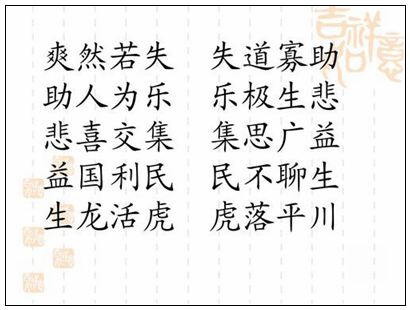 爽然若失 失道寡助
助人为乐 乐极生悲
悲喜交集 集思广益
益国利民 民不聊生
生龙活虎 虎落平川
吉祥如意